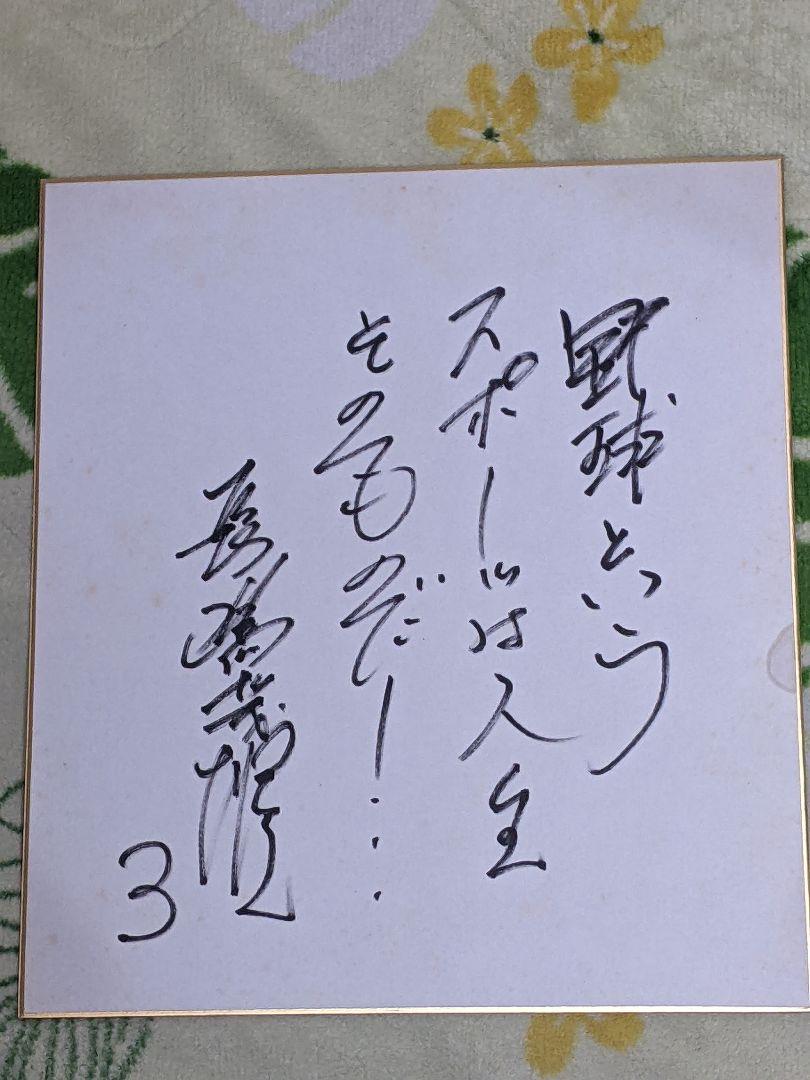 野球という
スポーツは人生
そのものだ!…
長嶋茂雄
3